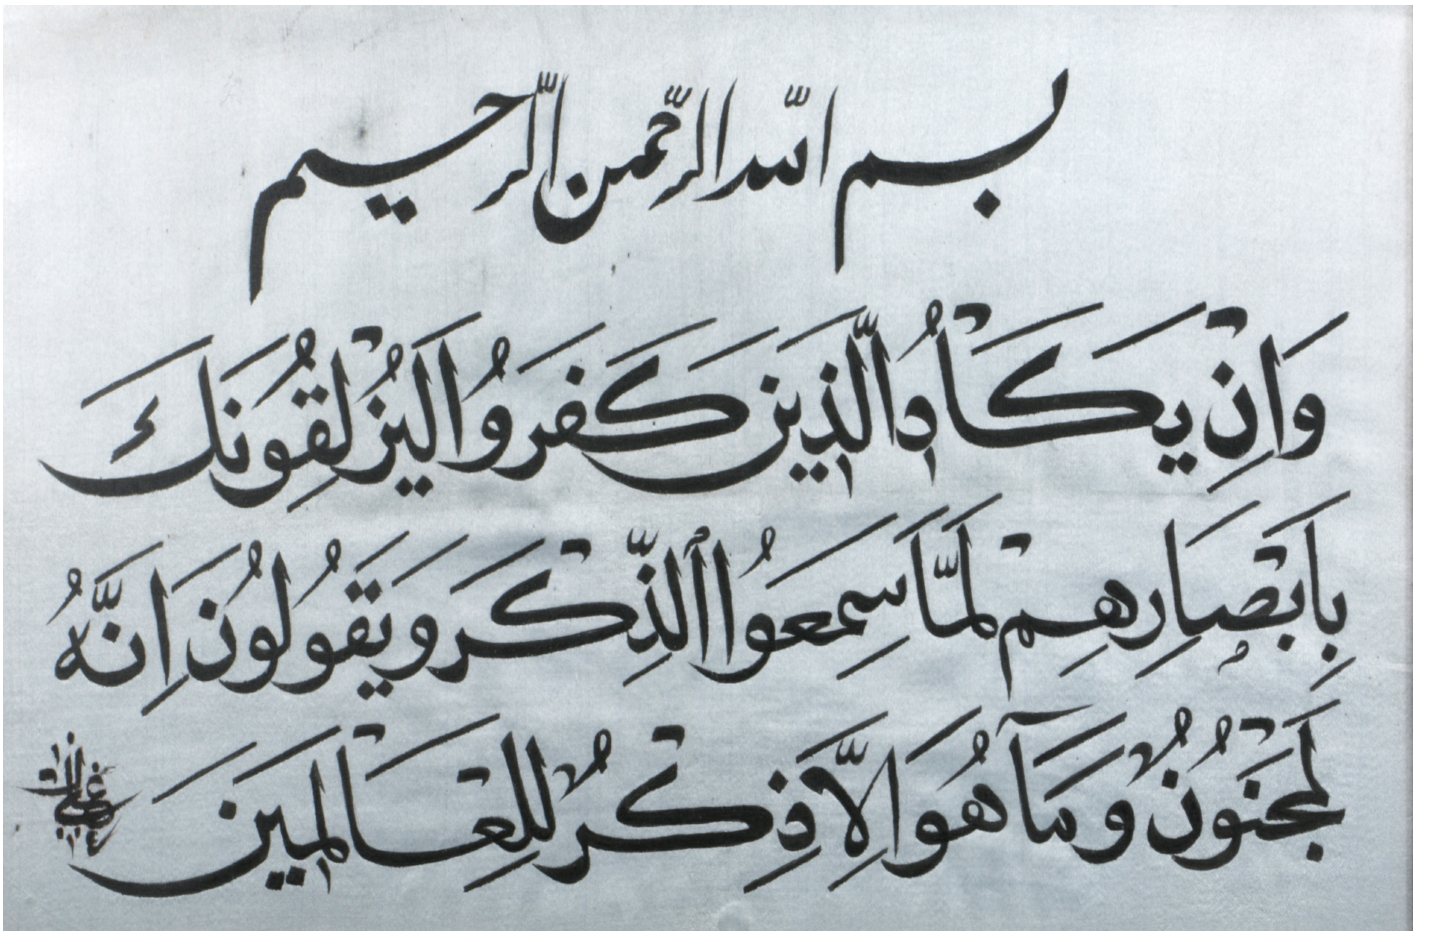 بسم الله الرحمن الرحيم
وَاِنْ يَكَادُ الَّذِينَ كَفَرُوا لَيُزْلِقُونَكَ
بِاَبْصَارِهِمْ لَمَّا سَمِعُوا الذِّكْرَ وَيَقُولُونَ اِنَّهُ
لَمَجْنُونٌ وَمَآ هُوَ اِلَّا ذِكْرٌ لِلْعَالَمِينَ